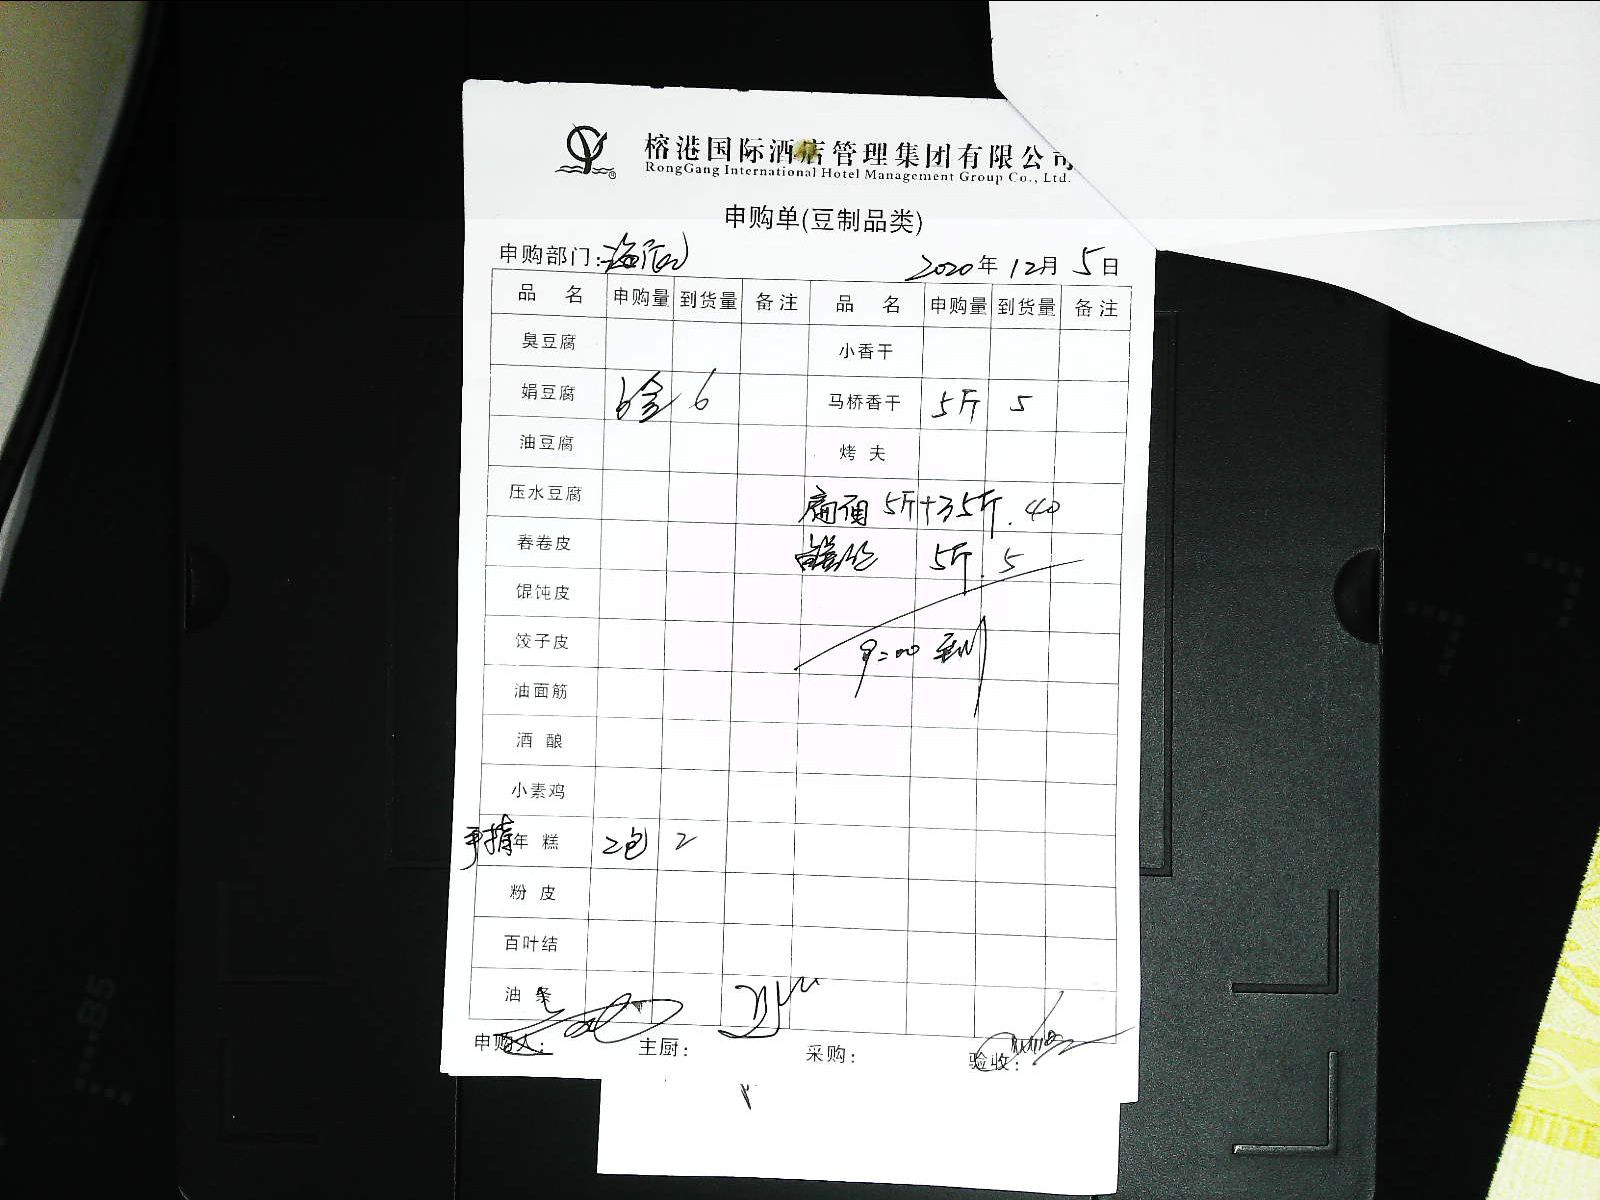 榕港国际酒店管理集团有限公司
RongGang International Hotel Management Group Co., Ltd.
申购单(豆制品类)
申购部门: 2020年12月5日
品 名 申购量 到货量 备注 品 名 申购量 到货量 备注
臭豆腐 小香干
娟豆腐 6盒 6 马桥香干 5斤 5
油豆腐 烤 夫
压水豆腐 扁面 5斤+35斤. 40
春卷皮 5斤. 5
馄饨皮
饺子皮 9:00 到
油面筋
酒 酿
小素鸡
年 糕 2包 2
粉 皮
百叶结
油 条
申购人: 主厨: 采购: 验收: